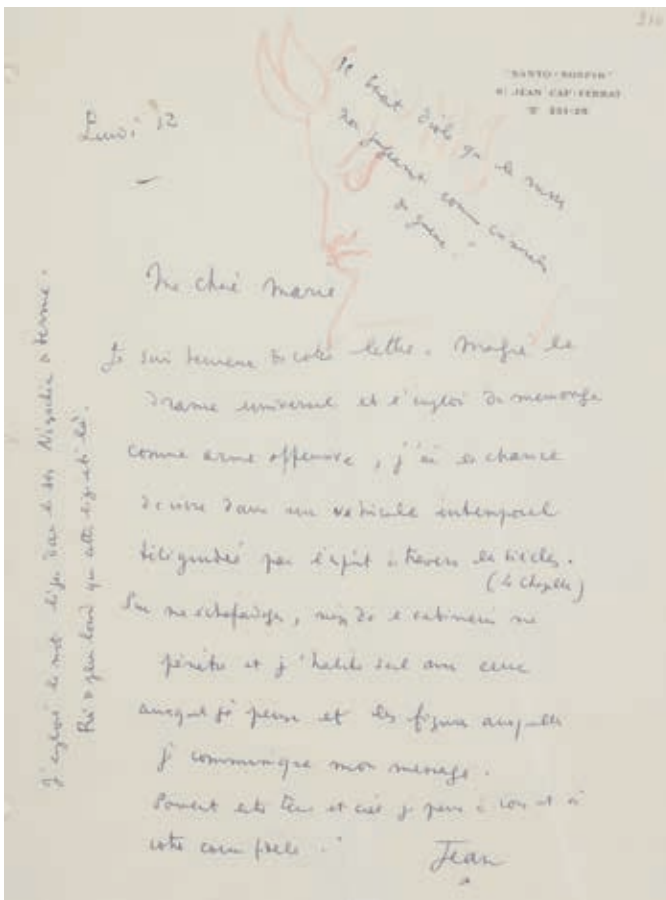 210
"SANTO-SOSPIR"
ST JEAN CAP-FERRAT
Lundi 12
Il serait drôle que le
comme
de guerre.
Ma chère Marie
Je suis heureux de votre lettre. Malgré le
drame universel et l'emploi du mensonge
comme arme offensive, j'ai la chance
de vivre dans un véhicule intemporel
téléguidé par l'esprit à travers les siècles.
(la chapelle)
Sur mes échafaudages, rien de
pénètre et j'habite seul avec ceux
auxquels je pense et les figures auxquelles
je communique mon message.
Souvent entre terre et ciel je pense à vous et à
votre cœur fidèle.
Jean
J'emploie le mot
Rien de plus lourd que cette